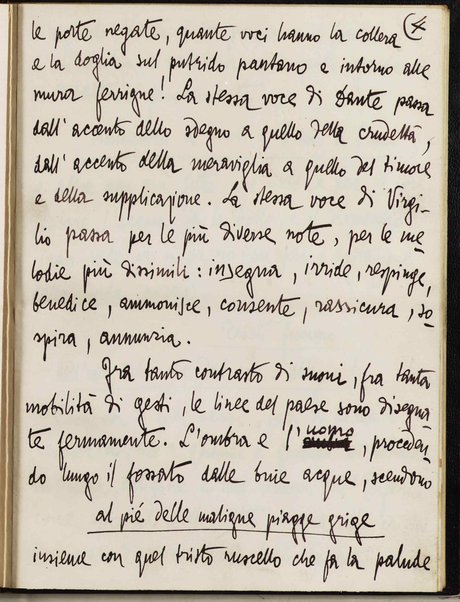 4
le porte negate, quante voci hanno la collera
e la doglia sul putrido pantano e intorno alle
mura ferrigne! La stessa voce di Dante passa
dall'accento dello sdegno a quello della crudeltà,
dall'accento della meraviglia a quello del timore
e della supplicazione. La stessa voce di Virgi-
lio passa per le più diverse note, per le me
lodie più dissimili: insegna, irride, respinge,
benedice, ammonisce, consente, rassicura, so
spira, annunzia.
Fra tanto contrasto di suoni, fra tanta
mobilità di gesti, le linee del paese sono disegna
te fermamente. L'ombra e l'uomo, proceden-
do lungo il fossato dalle buie acque, scendono
al pié delle maligne piagge grige
insieme con quel tristo ruscello che fa la palude